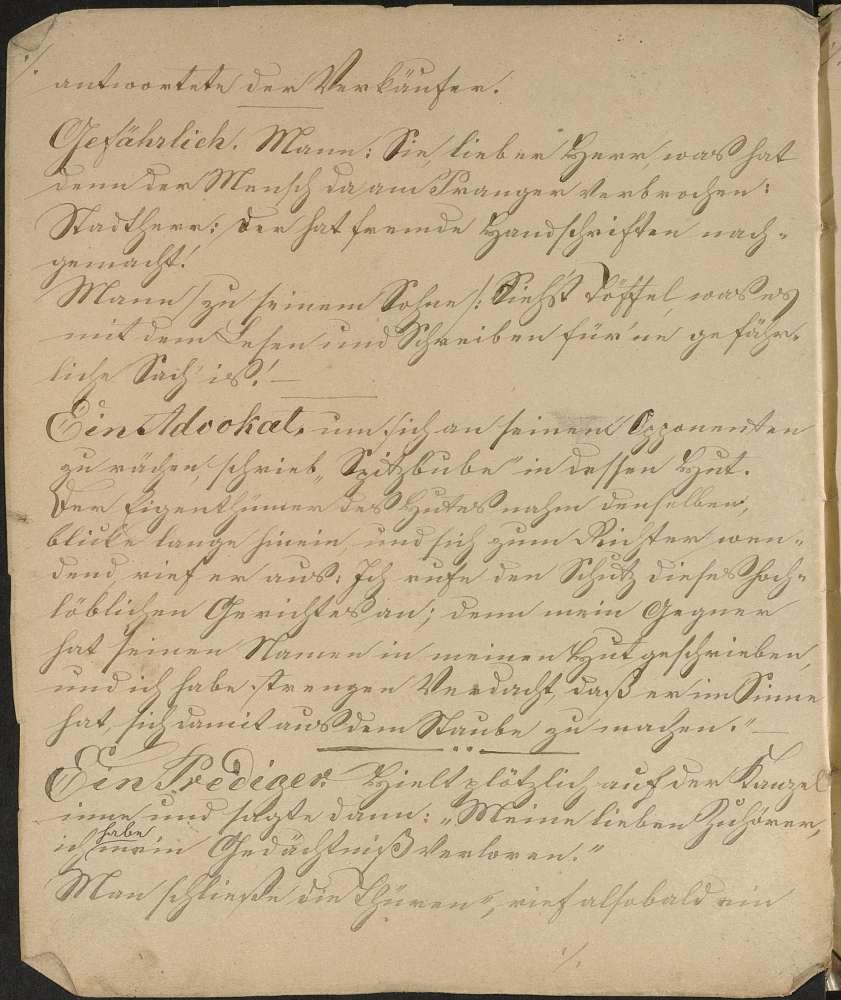 ./.
antwortete der Verkäufer.
Gefährlich. Mann: Sie, lieber Herr, was hat
denn der Mensch da am Pranger verbrochen:
Stadtherr: Der hat fremde Handschriften nach-
gemacht!
Mann (zu seinem Sohne): Siehst Töffel, was es
mit dem Lesen und Schreiben für 'ne gefähr-
liche Sach' is'! —
Ein Advokat, um sich an seinem Opponenten
zu rächen, schrieb „Spitzbube" in dessen Hut.
Der Eigenthümer des Hutes nahm denselben,
blickte lange hinein, und sich zum Richter wen-
dend, rief er aus: Ich rufe den Schutz dieses hoch-
löblichen Gerichtes an; denn mein Gegner
hat seinen Namen in meinen Hut geschrieben,
und ich habe strengen Verdacht, daß er im Sinne
hat, sich damit aus dem Staube zu machen." —
Ein Prediger. Hielt plötzlich auf der Kanzel
inne und sagte dann: „Meine lieben Zuhörer,
habe
ich mein Gedächtniß verloren."
Man schließe die Thüren", rief alsobald ein
./.